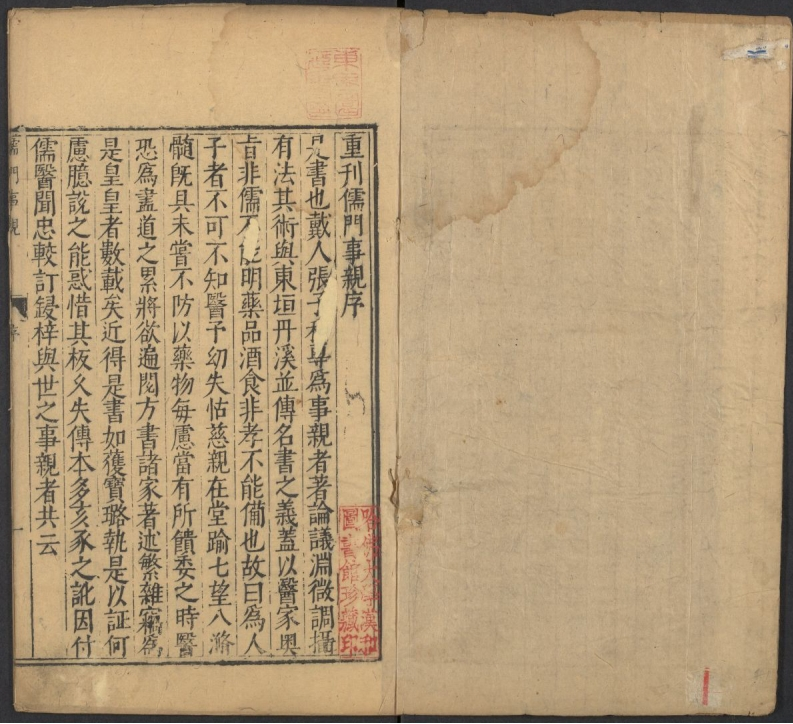 重刊儒門事親序
是書也戴人張子和專為事親者著論議淵微調攝
有法其術與東垣丹溪並傳名書之義蓋以醫家奧
旨非儒不能明藥品酒食非孝不能備也故曰為人
子者不可不知醫予幼失怙慈親在堂踰七望八滫
髓旣具未嘗不防以藥物每慮當有所饋委之時醫
恐為盡道之累將欲遍閱方書諸家著述繁雜竊為
是皇皇者數載矣近得是書如獲寶璐執是以証何
慮臆說之能惑惜其板久失傳本多亥豕之訛因付
儒醫聞忠較訂鋟梓與世之事親者共云
儒門事親
序
一
哈佛大學漢和
圖書館珍藏印